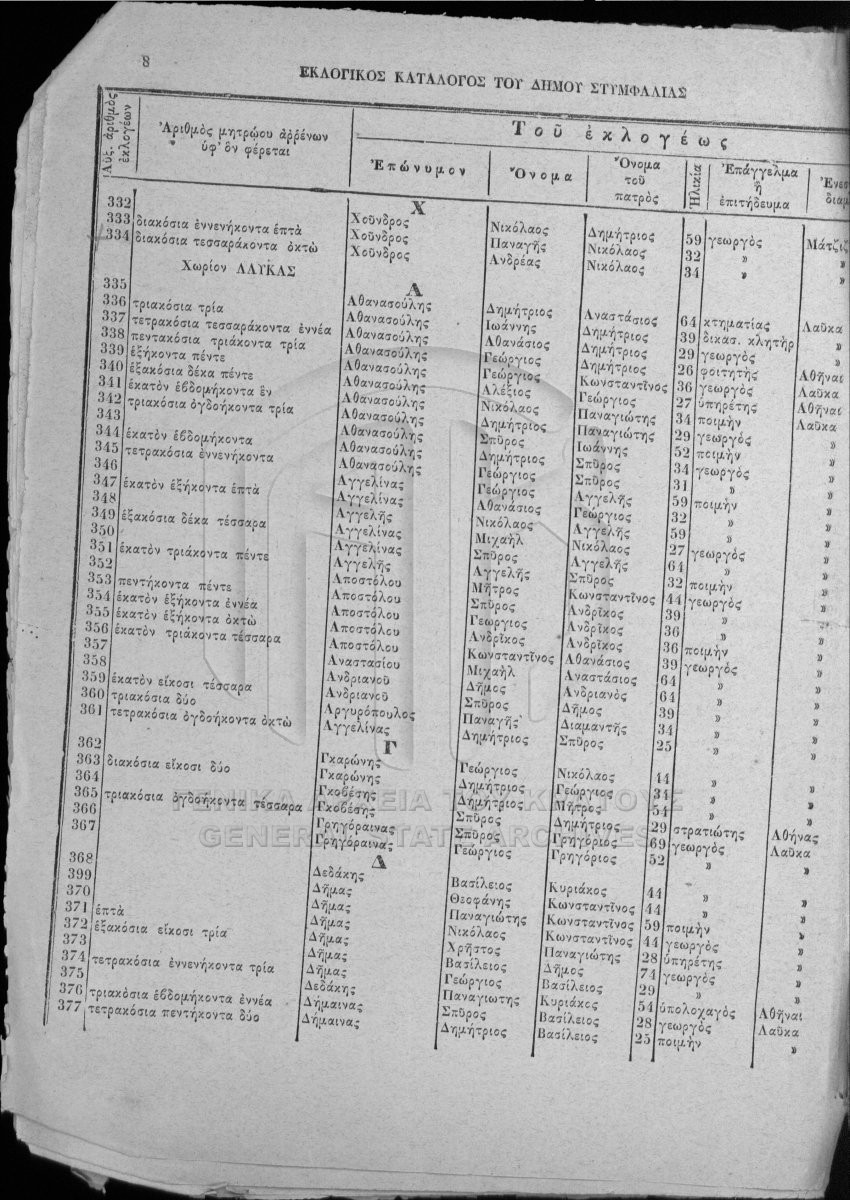 8
ΕΚΛΟΓΙΚΟΣ ΚΑΤΑΛΟΓΟΣ ΤΟΥ ΔΗΜΟΥ ΣΤΥΜΦΑΛΙΑΣ
Αὔξ. ἀριθμὸς ἐκλογέων
Ἀριθμὸς μητρῴου ἀρρένων
ὑφ' ὃν φέρεται
Τοῦ ἐκλογέως
Ἐπώνυμον
Ὄνομα
Ὄνομα
τοῦ
πατρὸς
Ἡλικία
Ἐπάγγελμα
ἢ
ἐπιτήδευμα
Χ
332 Χοῦνδρος Νικόλαος Δημήτριος 59 γεωργὸς Μάτζιζ
333 διακόσια ἐννενήκοντα ἑπτὰ Χοῦνδρος Παναγῆς Νικόλαος 32 » »
334 διακόσια τεσσαράκοντα ὀκτὼ Χοῦνδρος Ἀνδρέας Νικόλαος 34 » »
Χωρίον ΛΑΥΚΑΣ
Α
335 Ἀθανασούλης Δημήτριος Ἀναστάσιος 64 κτηματίας Λαῦκα
336 τριακόσια τρία Ἀθανασούλης Ἰωάννης Δημήτριος 39 δικασ. κλητὴρ »
337 τετρακόσια τεσσαράκοντα ἐννέα Ἀθανασούλης Ἀθανάσιος Δημήτριος 29 γεωργὸς »
338 πεντακόσια τριάκοντα τρία Ἀθανασούλης Γεώργιος Δημήτριος 26 φοιτητὴς Ἀθῆναι
339 ἑξήκοντα πέντε Ἀθανασούλης Γεώργιος Κωνσταντῖνος 36 γεωργὸς Λαῦκα
340 ἑξακόσια δέκα πέντε Ἀθανασούλης Ἀλέξιος Γεώργιος 27 ὑπηρέτης Ἀθῆναι
341 ἑκατὸν ἑβδομήκοντα ἓν Ἀθανασούλης Νικόλαος Παναγιώτης 34 ποιμὴν Λαῦκα
342 τριακόσια ὀγδοήκοντα τρία Ἀθανασούλης Δημήτριος Παναγιώτης 29 γεωργὸς »
343 Ἀθανασούλης Σπῦρος Ἰωάννης 52 ποιμὴν »
344 ἑκατὸν ἑβδομήκοντα Ἀθανασούλης Δημήτριος Σπῦρος 34 γεωργὸς »
345 τετρακόσια ἐννενήκοντα Ἀθανασούλης Γεώργιος Σπῦρος 31 » »
346 Ἀγγελίνας Γεώργιος Ἀγγελῆς 59 ποιμὴν »
347 ἑκατὸν ἑξήκοντα ἑπτὰ Ἀγγελίνας Ἀθανάσιος Γεώργιος 32 » »
348 Ἀγγελῆς Νικόλαος Ἀγγελῆς 59 » »
349 ἑξακόσια δέκα τέσσαρα Ἀγγελίνας Μιχαὴλ Νικόλαος 27 γεωργὸς »
350 Ἀγγελίνας Σπῦρος Ἀγγελῆς 64 » »
351 ἑκατὸν τριάκοντα πέντε Ἀγγελῆς Ἀγγελῆς Σπῦρος 32 ποιμὴν »
352 Ἀποστόλου Μῆτρος Κωνσταντῖνος 44 γεωργὸς »
353 πεντήκοντα πέντε Ἀποστόλου Σπῦρος Ἀνδρῖκος 39 » »
354 ἑκατὸν ἑξήκοντα ἐννέα Ἀποστόλου Γεώργιος Ἀνδρῖκος 36 » »
355 ἑκατὸν ἑξήκοντα ὀκτὼ Ἀποστόλου Ἀνδρῖκος Ἀνδρῖκος 36 ποιμὴν »
356 ἑκατὸν τριάκοντα τέσσαρα Ἀποστόλου Κωνσταντῖνος Ἀθανάσιος 39 γεωργὸς »
357 Ἀναστασίου Μιχαὴλ Ἀναστάσιος 64 » »
358 Ἀνδριανοῦ Δῆμος Ἀνδριανὸς 64 » »
359 ἑκατὸν εἴκοσι τέσσαρα Ἀνδριανοῦ Σπῦρος Δῆμος 39 » »
360 τριακόσια δύο Ἀργυρόπουλος Παναγῆς Διαμαντῆς 34 » »
361 τετρακόσια ὀγδοήκοντα ὀκτὼ Ἀγγελίνας Δημήτριος Σπῦρος 25 » »
Γ
362 Γκαρώνης Γεώργιος Νικόλαος 44 » »
363 διακόσια εἴκοσι δύο Γκαρώνης Δημήτριος Γεώργιος 34 » »
364 Γκοβέσης Δημήτριος Μῆτρος 54 » »
365 τριακόσια ὀγδοήκοντα τέσσαρα Γκοβέσης Σπῦρος Δημήτριος 29 στρατιώτης Ἀθήνας
366 Γρηγόραινας Σπῦρος Γρηγόριος 69 γεωργὸς Λαῦκα
367 Γρηγόραινας Γεώργιος Γρηγόριος 52 » »
Δ
368 Δεδάκης Βασίλειος Κυριάκος 44 » »
399 Δῆμας Θεοφάνης Κωνσταντῖνος 44 » »
370 Δῆμας Παναγιώτης Κωνσταντῖνος 59 ποιμὴν »
371 ἑπτὰ Δῆμας Νικόλαος Κωνσταντῖνος 44 γεωργὸς »
372 ἑξακόσια εἴκοσι τρία Δῆμας Χρῆστος Παναγιώτης 28 ὑπηρέτης »
373 Δῆμας Βασίλειος Δῆμος 74 γεωργὸς »
374 τετρακόσια ἐννενήκοντα τρία Δῆμας Γεώργιος Βασίλειος 29 » »
375 Δεδάκης Παναγιωτης Κυριάκος 54 ὑπολοχαγὸς Ἀθῆναι
376 τριακόσια ἑβδομήκοντα ἐννέα Δήμαινας Σπῦρος Βασίλειος 28 γεωργὸς Λαῦκα
377 τετρακόσια πεντήκοντα δύο Δήμαινας Δημήτριος Βασίλειος 25 ποιμὴν »
ΓΕΝΙΚΑ ΑΡΧΕΙΑ ΤΟΥ ΚΡΑΤΟΥΣ
GENERAL STATE ARCHIVES